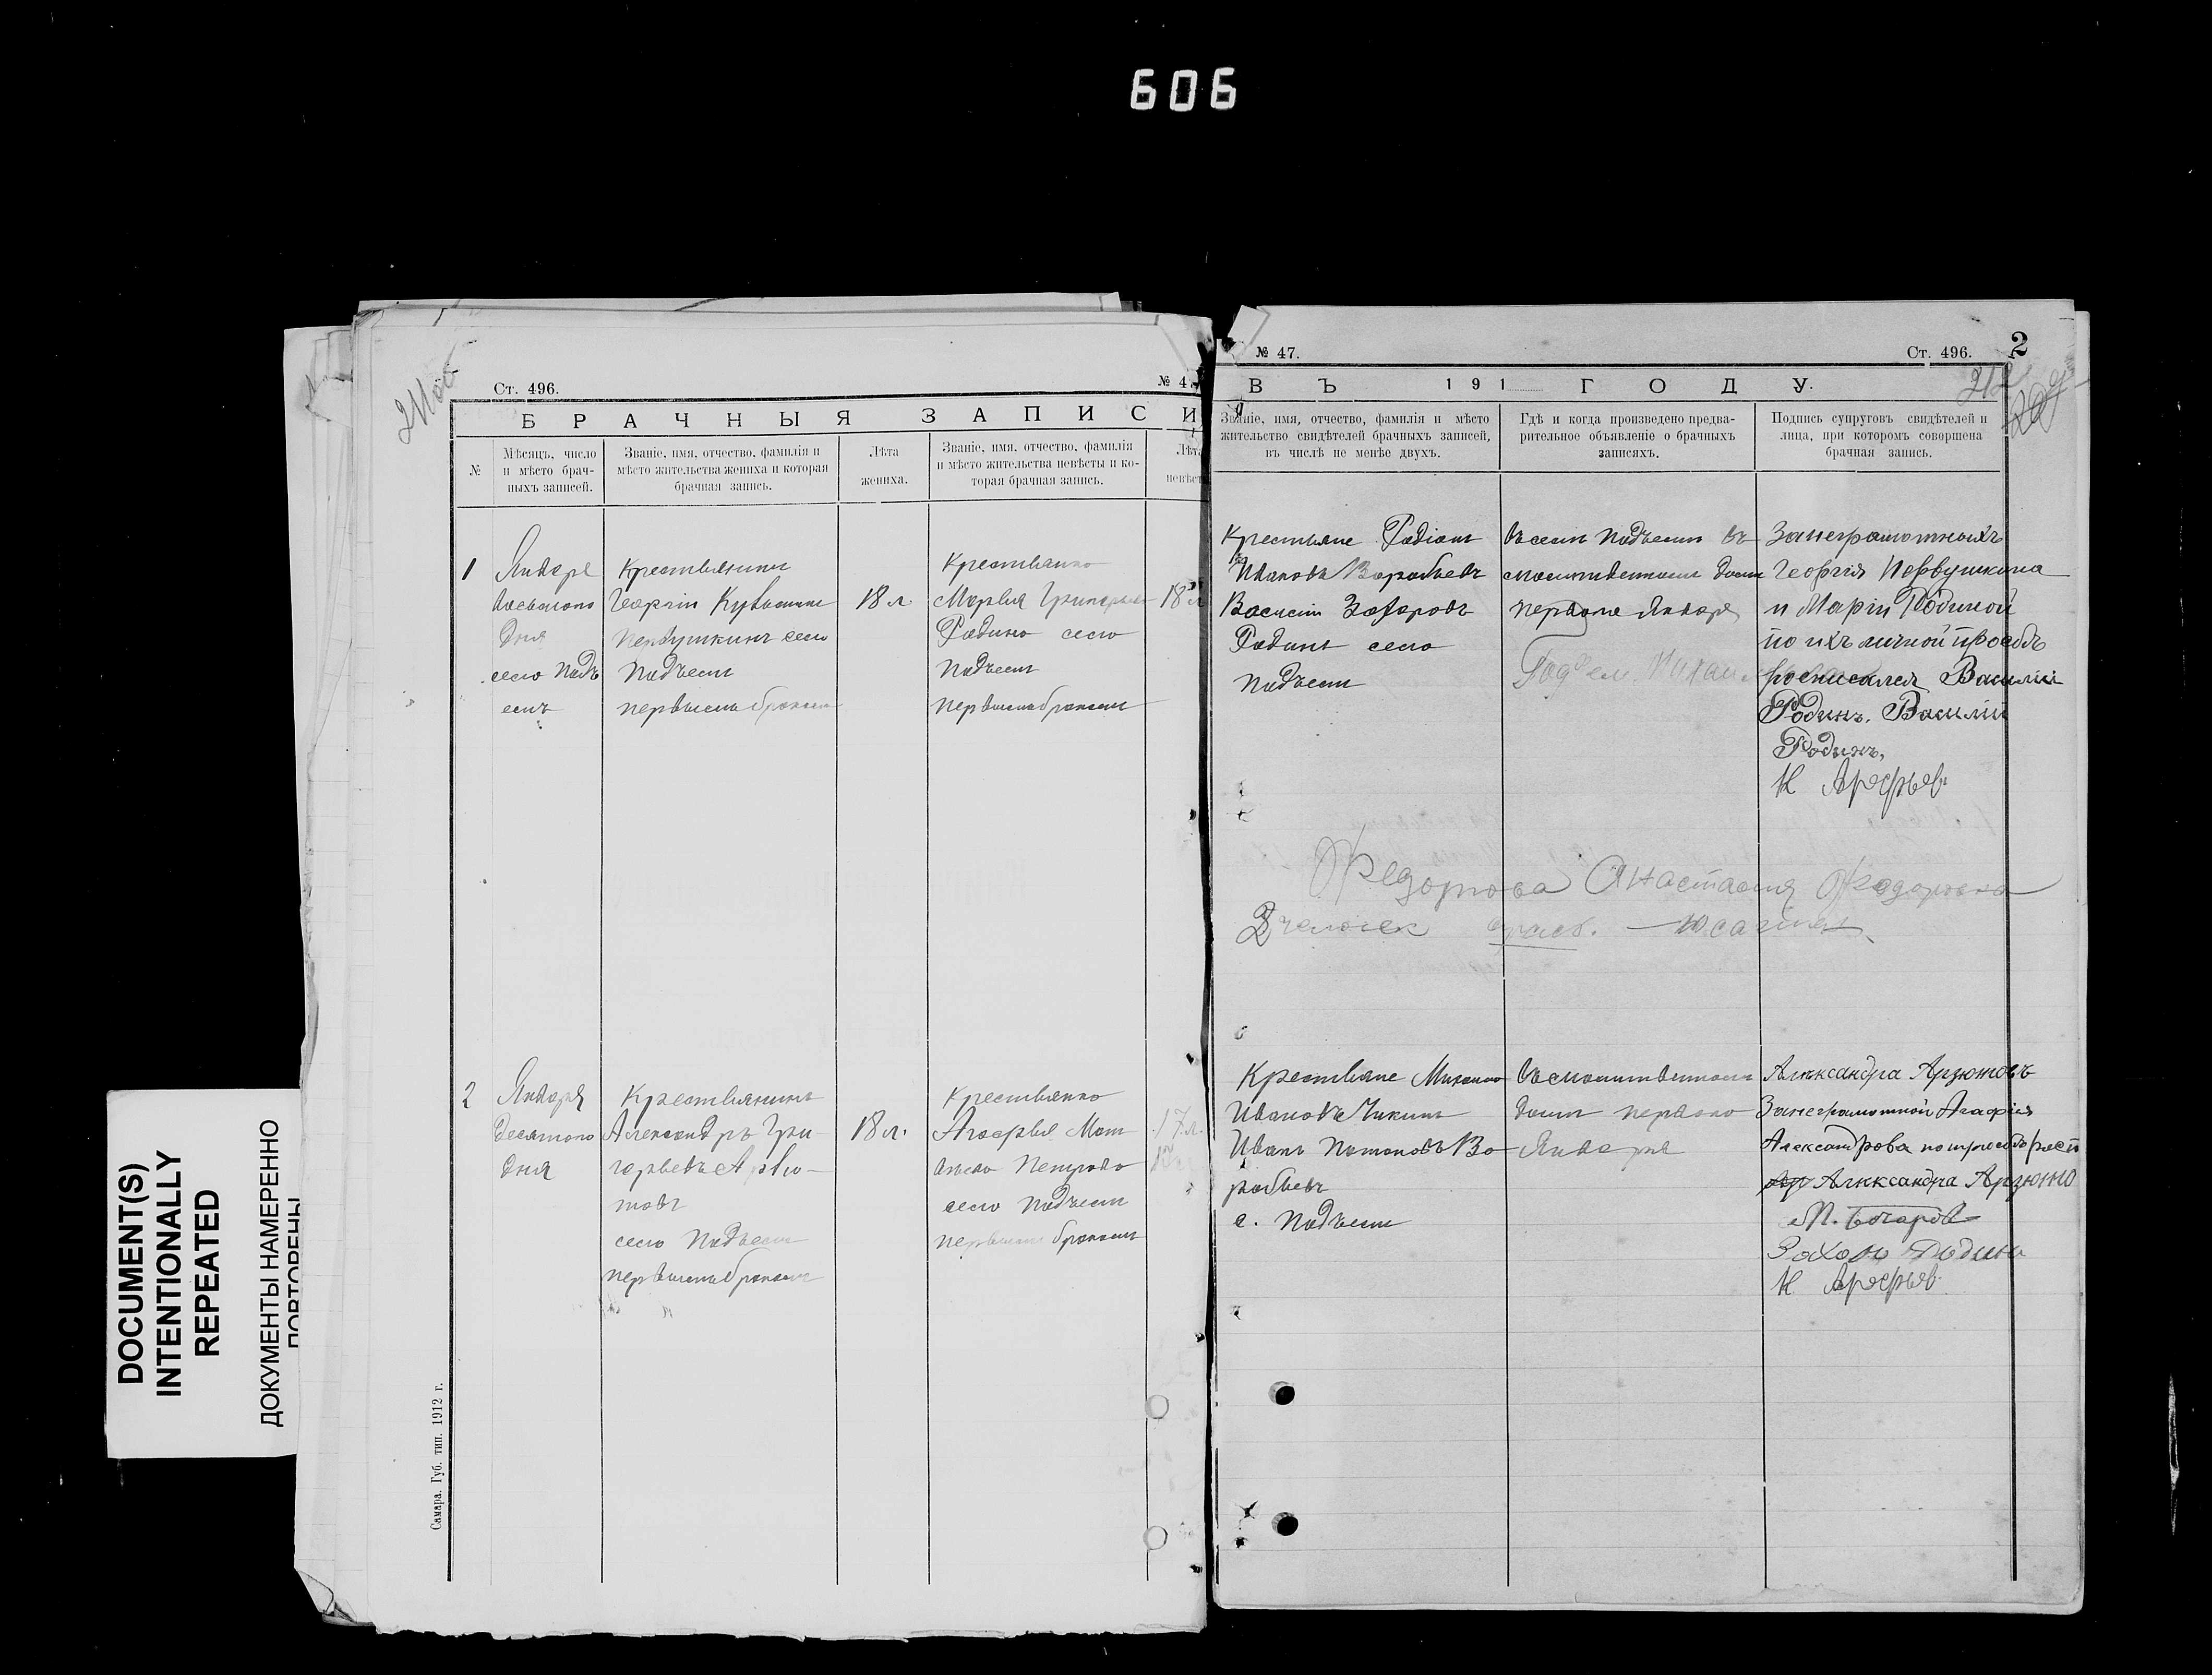 606
DOCUMENT(S)
INTENTIONALLY
REPEATED
ДОКУМЕНТЫ НАМЕРЕННО
ПОВТОРЕНЫ
Ст. 496.
№ 47
БРАЧНЫЯ ЗАПИСИ
№
Мѣсяцъ, число
и мѣсто брач-
ныхъ записей.
Званіе, имя, отчество, фамилія и
мѣсто жительства жениха и которая
брачная запись.
Лѣта
жениха.
Званіе, имя, отчество, фамилія
и мѣсто жительства невѣсты и ко-
торая брачная запись.
Лѣта
невѣст
1
Января
восьмого
дня
село Подъ
емъ
Крестьянинъ
Георгій Кузьминъ
Первушкинъ село
Подъемъ
первымъ бракомъ
18 л.
Крестьянка
Марья Григорьев
Родина село
Подъемъ
первымъ бракомъ
18 л
2
Января
десятого
дня
Крестьянинъ
Александръ Гри-
горьевъ Арзю-
товъ
село Подъемъ
первымъ бракомъ
18 л.
Крестьянка
Агафья Мат
село Подъемъ
первымъ бракомъ
17 л.
Самара. Губ. тип. 1912 г.
№ 47.
Ст. 496.
2
ВЪ 191 ГОДУ.
Званіе, имя, отчество, фамилія и мѣсто
жительство свидѣтелей брачныхъ записей,
въ числѣ не менѣе двухъ.
Гдѣ и когда произведено предва-
рительное объявленіе о брачныхъ
записяхъ.
Подпись супруговъ свидѣтелей и
лица, при которомъ совершена
брачная запись.
Крестьяне Родіонъ
Ивановъ Воробьевъ
Василій Захаровъ
Родинъ село
Подъемъ
въ селѣ Подъемъ въ
молитвенномъ домѣ
первого Января
За неграмотныхъ
Георгія Первушкина
и Маріи Родиной
по ихъ личной просьбѣ
росписался Василій
Родинъ. Василій
Родинъ.
Н Арефьев
Федотова Анастасия Федоровна
человек
Крестьяне Михаил
Ивановъ Чикинъ
Иванъ Потаповъ Во-
робьевъ
с. Подъемъ
въ молитвенномъ
домѣ первого
Января
Александра Арзютовъ
За неграмотной Агафія
Александрова по просьбѣ расп
Александра Арзютов
М. Бочаров
Захаръ Родина
Н Арефьев